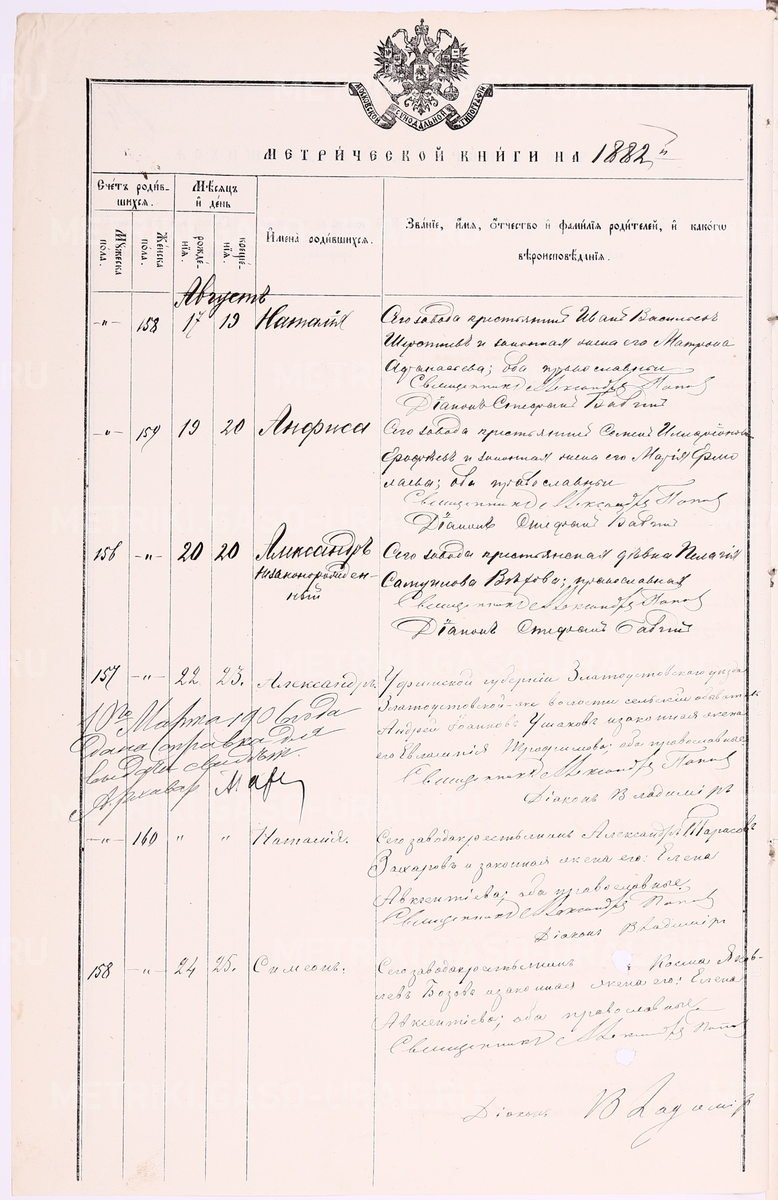 МОСКОВСКОЙ СѴНОДАЛЬНОЙ ТИПОГРАФІИ
МЕТРИ́ЧЕСКОЙ КНИ́ГИ НА 1882
Сче́тъ роди́вшихся.
Мѣ́сяцъ и҆ де́нь
Мꙋ́жеска по́ла.
Же́нска по́ла.
рожде́нїѧ.
креще́нїѧ.
И҆мена̀ роди́вшихся.
Зва́нїе, и҆́мѧ, ѻ҆́тчество и҆ фами́лїѧ роди́телей, и҆ како́гѡ
вѣроисповѣ́данїѧ.
Августъ
-"- 158 17 19 Наталія Сего завода крестьянинъ Иванъ Васильевъ
и законная жена его Матрона
Афанасьева; оба православныи
Священникъ Александръ Поповъ
Діаконъ Стефанъ
-"- 159 19 20 Анфиса Сего завода крестьянинъ Семенъ Илларіоновъ
и законная жена его Марія Ермо
лаева; оба православныи
Священникъ Александръ Поповъ
Діаконъ Стефанъ
156 -"- 20 20 Александръ Сего завода крестьянская дѣвка Пелагія
незаконорожден-
ный
православная
Священникъ Александръ Поповъ
Діаконъ Стефанъ
157 -"- 22 23. Александръ. Уфимской губерніи Златоустовского уѣзда
Златоустовской волости сельскій обыватель
Андрей Іоанновъ Ушаковъ и законная жена
его Евлампія Трофимова; оба православные
Священникъ Александръ Поповъ
Діаконъ Владиміръ
10го Марта 1906 года
дана справка для
-"- 160 " " Наталія. Сего завода крестьянинъ Александръ Тарасовъ
Захаровъ и законная жена его: Елена
Авксентіева; оба православные.
Священникъ Александръ Поповъ
Діаконъ Владиміръ
158 -"- 24 25. Симеонъ. Сего завода крестьянинъ Косма Яков-
левъ Бозовъ и законная жена его: Елена
Авксентіева; оба православные
Священникъ Александръ Поповъ
Діаконъ Владиміръ